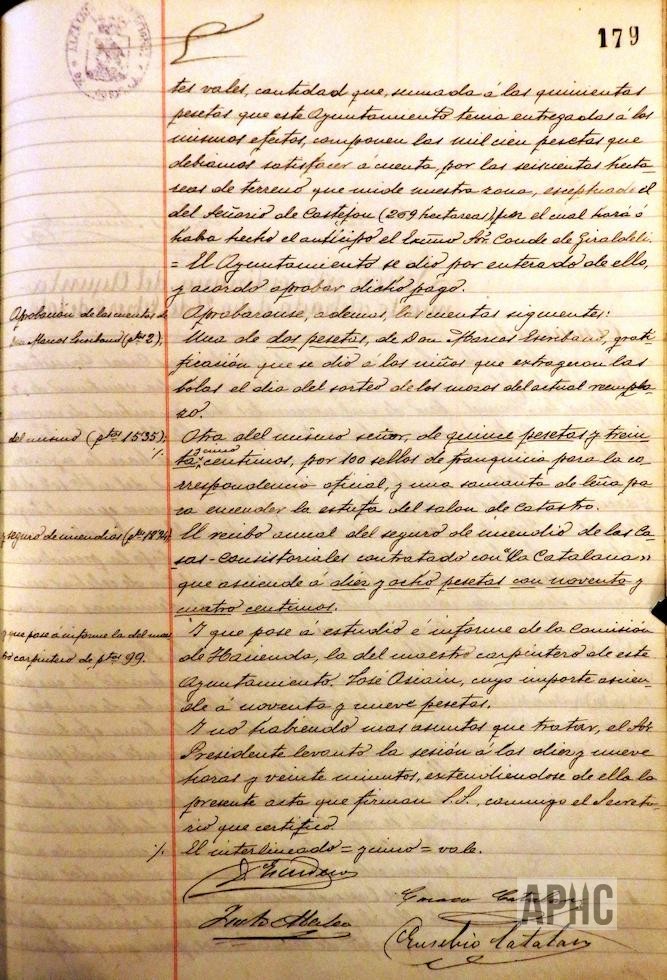 179
tes vales, cantidad que, sumada á las quinientas
pesetas que este Ayuntamiento tenia entregadas á los
mismos efectos, componen las mil cien pesetas que
debiamos satisfacer á cuenta, por las seiscientas hectá-
reas de terreno que mide nuestra zona, esceptuado el
del Señorio de Castejon (209 hectareas) por el cual hará ó
haba hecho el anticipo el Excmo Sr. Conde de Giraldeli.
= El Ayuntamiento se dió por enterado de ello,
y acordó aprobar dicho pago.
Aprobacion de las cuentas de
Don Marcos Escribano (ptas 2),
Aprobaronse, además, las cuentas siguientes:
Una de dos pesetas, de Don Marcos Escribano, grati-
ficasión que se dió á los niños que extrageron las
bolas el dia del sorteo de los mozos del actual reempla-
zo.
del mismo (ptas 15'35);
Otra del mismo señor, de quince pesetas y trein-
ta y cinco centimos, por 100 sellos de franquicia para la co-
rrespondencia oficial, y una samanta de leña pa-
ra encender la estufa del salon de Catastro.
y seguro de incendios (ptas 18'94);
El recibo anual del seguro de incendio de las Ca-
sas-consistoriales contratado con "La Catalana"
que asciende á diez y ocho pesetas con noventa y
cuatro centimos.
y que pase á informe la del maes-
tro carpintero de ptas 99.
Y que pase á estudio é informe de la Comisión
de Hacienda, la del maestro carpintero de este
Ayuntamiento. José Asiain, cuyo importe ascien-
de á noventa y nueve pesetas.
Y no habiendo mas asuntos que tratar, el Sr.
Presidente levantó la sesión á las diez y nueve
horas y veinte minutos, extendiendose de ella la
presente acta que firman S.S., conmigo el Secreta-
rio que certifico.
·/. El interlineado = y cinco = vale.
Justo Mateo
Catalan
Eusebio Catalan
APHC